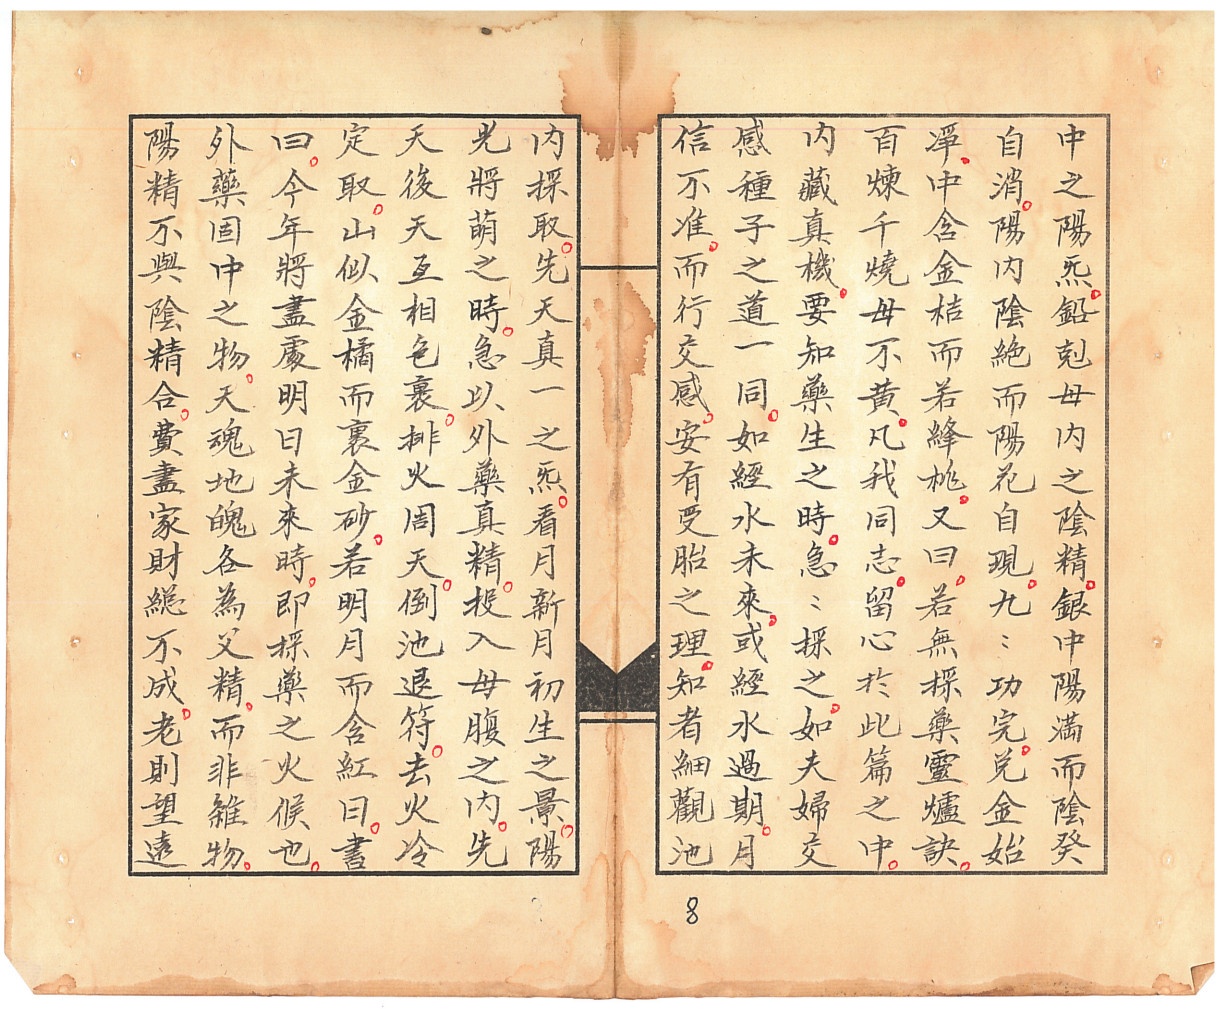 中之陽炁。鉛剋母内之陰精。銀中陽滿而陰癸
自消。陽内陰絶而陽花自現。九〻功完。兑金始
凈。中含金桔而若絳桃。又曰。若無採藥靈爐訣。
百煉千燒毋不黄。凡我同志。留心於此篇之中。
内藏真機。要知藥生之時。急〻採之。如夫婦交
感種子之道一同。如經水未來。或經水過期。月
信不准。而行交感。安有受胎之理。知者細觀池
内採取。先天真一之炁。看月新月初生之景。陽
光將萌之時。急以外藥真精。投入母腹之内。先
天後天互相色裹。排火周天。倒池退符。去火冷
定取。山似金橘而裹金砂。若明月而含紅日。書
曰。今年將盡處明日未來時。即採藥之火候也。
外藥固中之物。天魂地魄各為父精。而非雑物。
陽精不與陰精合。費盡家財緫不成。老則望遠
8